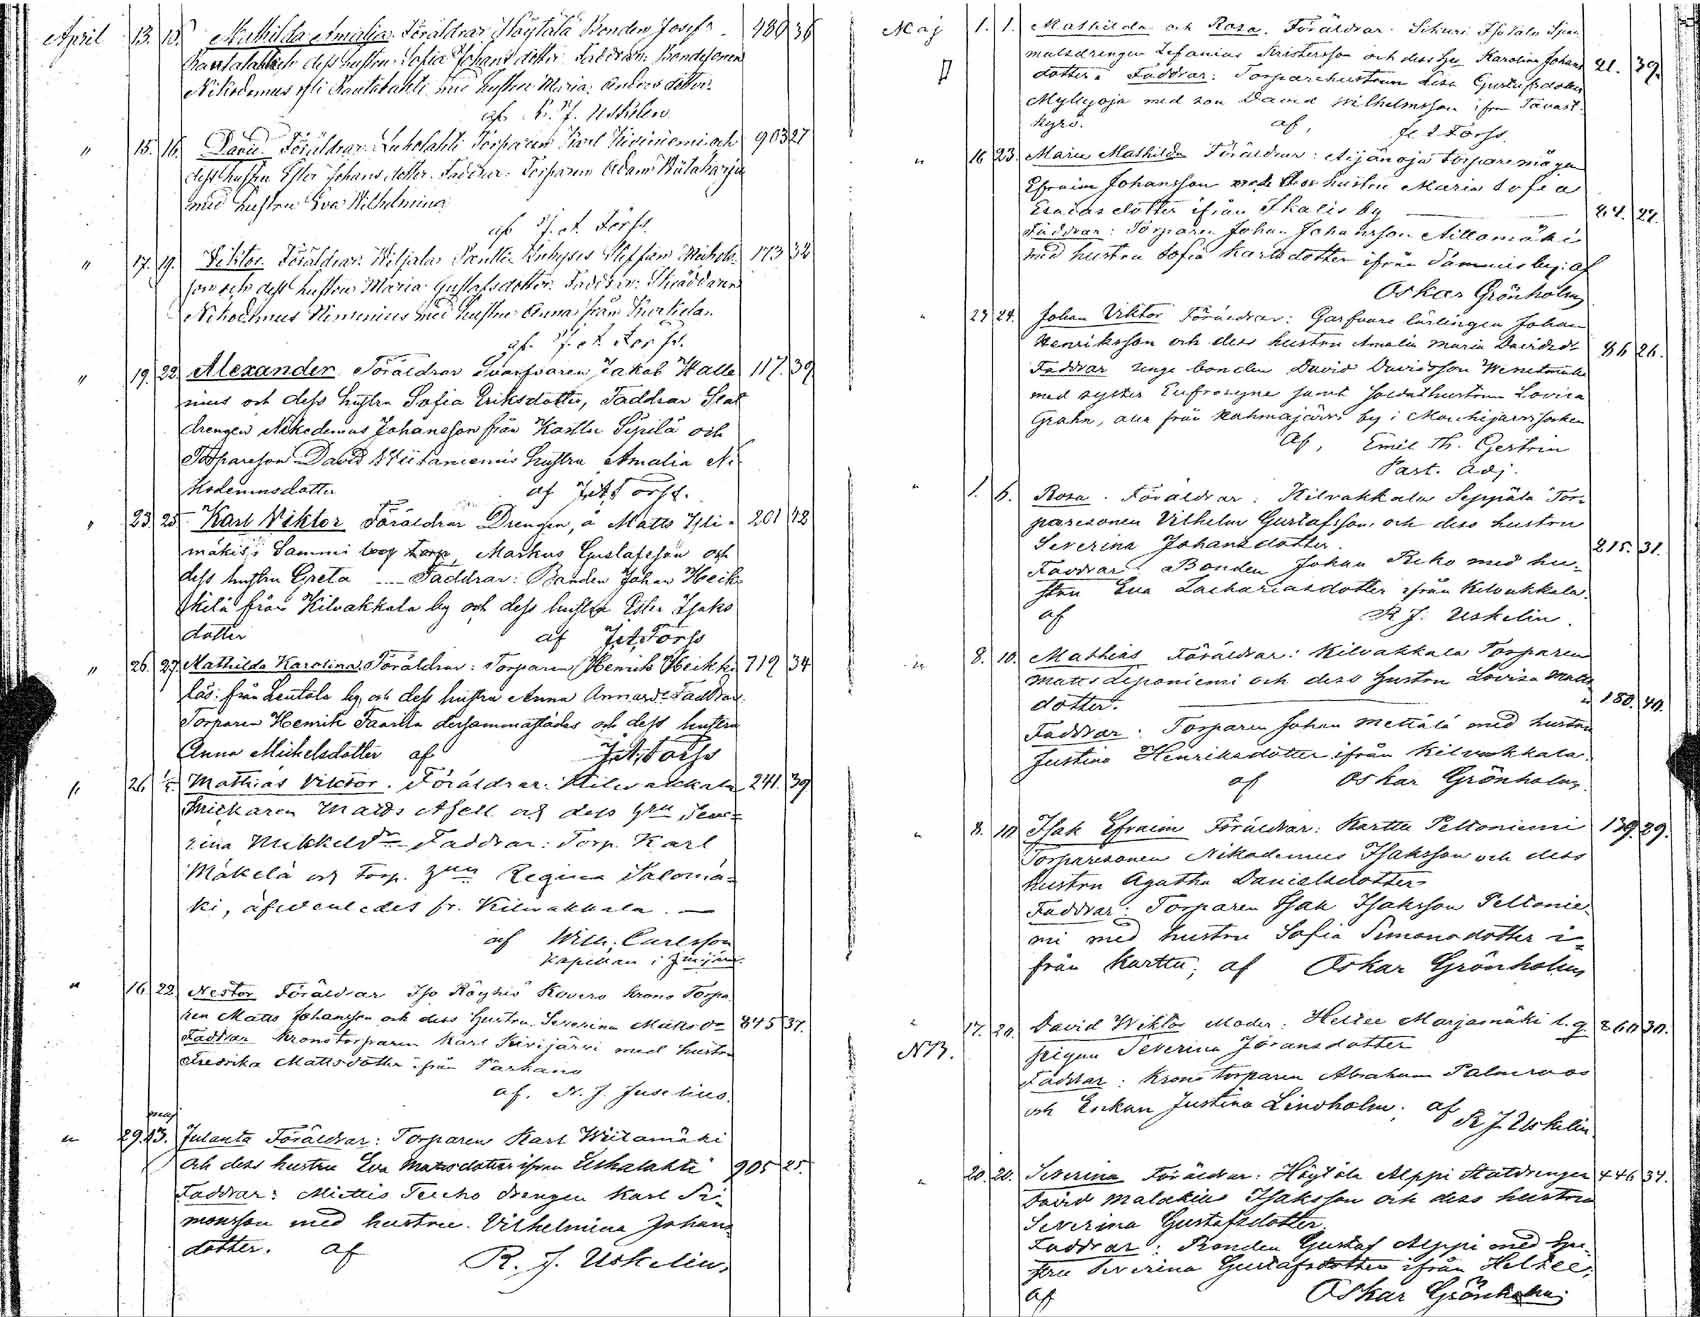 April 13. 15. Mathilda Amalia. Föräldrar: Höytälä Bonden Josef 480 36
Rautalahti och dess hustru Sofia Johansdotter. Faddrar: Bondesonen
Nikodemus Rautalahti med hustru Maria Andersdotter.
af R. J. Uskelin
" 15. 16. David Föräldrar: Luholahti Torparen Karl Kiviniemi och 903 27
dess hustru Ester Johansdotter. Faddrar: Torparen Adam Riitaharju
med hustru Eva Wilhelmina
af J. A. Forss.
" 17. 19. Viktor. Föräldrar: Inhyses Steffan 173 32
son och dess hustru Maria Gustafsdotter. Faddrar: Skräddaren
Nikodemus med hustru Anna från
af J. A. Forss.
" 19. 22. Alexander Föräldrar Garfvaren Jakob Walle 117. 39
nius och dess hustru Sofia Eriksdotter, Faddrar Stat
drengen Nikodemus Johansson från Karttu Sipilä och
Torpareson David Wiitaniemis hustru Amalia Ni-
kodemusdotter af J A Forss.
" 23. 25. Karl Viktor Föräldrar Drengen, å Matts
mäkis i Sammi by torp, Markus Gustafsson och 201 42
dess hustru Greta — Faddrar: Bonden Johan Heik
kilä från Kilvakkala by och dess hustru Ester Isaks
dotter af J. A. Forss
" 26. 27. Mathilda Karolina. Föräldrar: Torparen Henrik Heikki 719 34
läs från Leutola by och dess hustru Anna Faddrar
Torparen Henrik dersammastädes och dess hustru
Anna Mickelsdotter af J. A. Forss
" 26 1/5 Mathias Viktor. Föräldrar: Kilvakkala 241. 39
Snickaren Matts Asell och dess hru Seve-
rina Mikkelsdr Faddrar: Torp. Karl
Mäkelä och Torp. Regina Salomä-
ki, äfvenledes fr. Kilvakkala. —
af Wilh. Carlsson
Kapellan i
" 16 22 Nestor Föräldrar Iso Röyhiö Kovero Krono Torpa
ren Matts Johansson och dess hustru Severina 845 37.
Faddrar Kronotorparen Karl Kivijärvi med hustru
Fredrika Mattsdotter från Parkano
af, N. J. Juselius.
maj
" 29. 13. Julanta Föräldrar: Torparen Karl Wiitamäki
och dess hustru Eva Mattsdotter ifrån Luhalahti 905 25.
Faddrar: Miettis drengen Karl Si-
monsson med hustru Vilhelmina Johans
dotter. af R. J. Uskelin.
Maj 1. 1. Mathilda och Rosa. Föräldrar. Sikuri Isotalo
drengen Zefanias Kristersson och dess hu Karolina Johans 21. 39.
dotter. Faddrar: Torparehustrun Lisa Gustafsdotter
Myllyoja med son David Wilhelmsson ifrån Tavast-
kyrö. af, J A Forss.
" 16 23. Maria Mathilda Föräldrar: Äijänoja torparemågen
Efraim Johansson med dess hustru Maria Sofia
Esaiasdotter ifrån Ikalis by — 84. 27.
Faddrar: Torparen Johan Johansson Aittomäki
med hustru Sofia Karlsdotter ifrån Sammis by: af
Oskar Grönholm
" 23 24. Johan Viktor Föräldrar: Garfvare lärlingen Johan
Henriksson och dess hustru Amalia Maria Davidsdr 86 26.
Faddrar unge bonden David Davidsson
med syster Eufrosyne samt Soldathustrun Lovisa
Grahn, alla från Kahmajärvi by i Mouhijärvi socken
af, Emil Th. Gestrin
Past. adj.
" 1. 6. Rosa. Föräldrar: Kilvakkala Seppälä Tor-
paresonen Vilhelm Gustafsson och dess hustru
Severina Johansdotter. 215. 31.
Faddrar: Bonden Johan Reko med hu-
stru Eva Zachariasdotter ifrån Kilvakkala.
af R J. Uskelin.
" 8. 10. Mathias Föräldrar: Kilvakkala Torparen
Matts och dess hustru Lovisa Matts
dotter. — 180. 40.
Faddrar: Torparen Johan Mettälä med hustru
Justina Henriksdotter ifrån Kilvakkala.
af Oskar Grönholm.
" 8. 10 Isak Efraim Föräldrar: Karttu Peltoniemi 139. 29.
Torparesonen Nikodemus Isaksson och dess
hustru Agatha Danielsdotter
Faddrar: Torparen Isak Isaksson Peltonie-
mi med hustru Sofia Simonsdotter i-
från Karttu; af Oskar Grönholm
" 17. 20. David Wiktor Moder: Heltee Marjamäki l. q. 860 30.
NB. pigan Severina Göransdotter
Faddrar: Kronotorparen Abraham Palmroos
och Enkan Justina Lindholm; af R J Uskelin.
" 20. 20. Severina Föräldrar: Höytölä Alppi Statdrengen 446 34.
David Malakias Isaksson och dess hustru
Severina Gustafsdotter.
Faddrar: Bonden Gustaf Alppi med hu-
stru Severina Gustafsdotter ifrån Heltee;
af Oskar Grönholm;